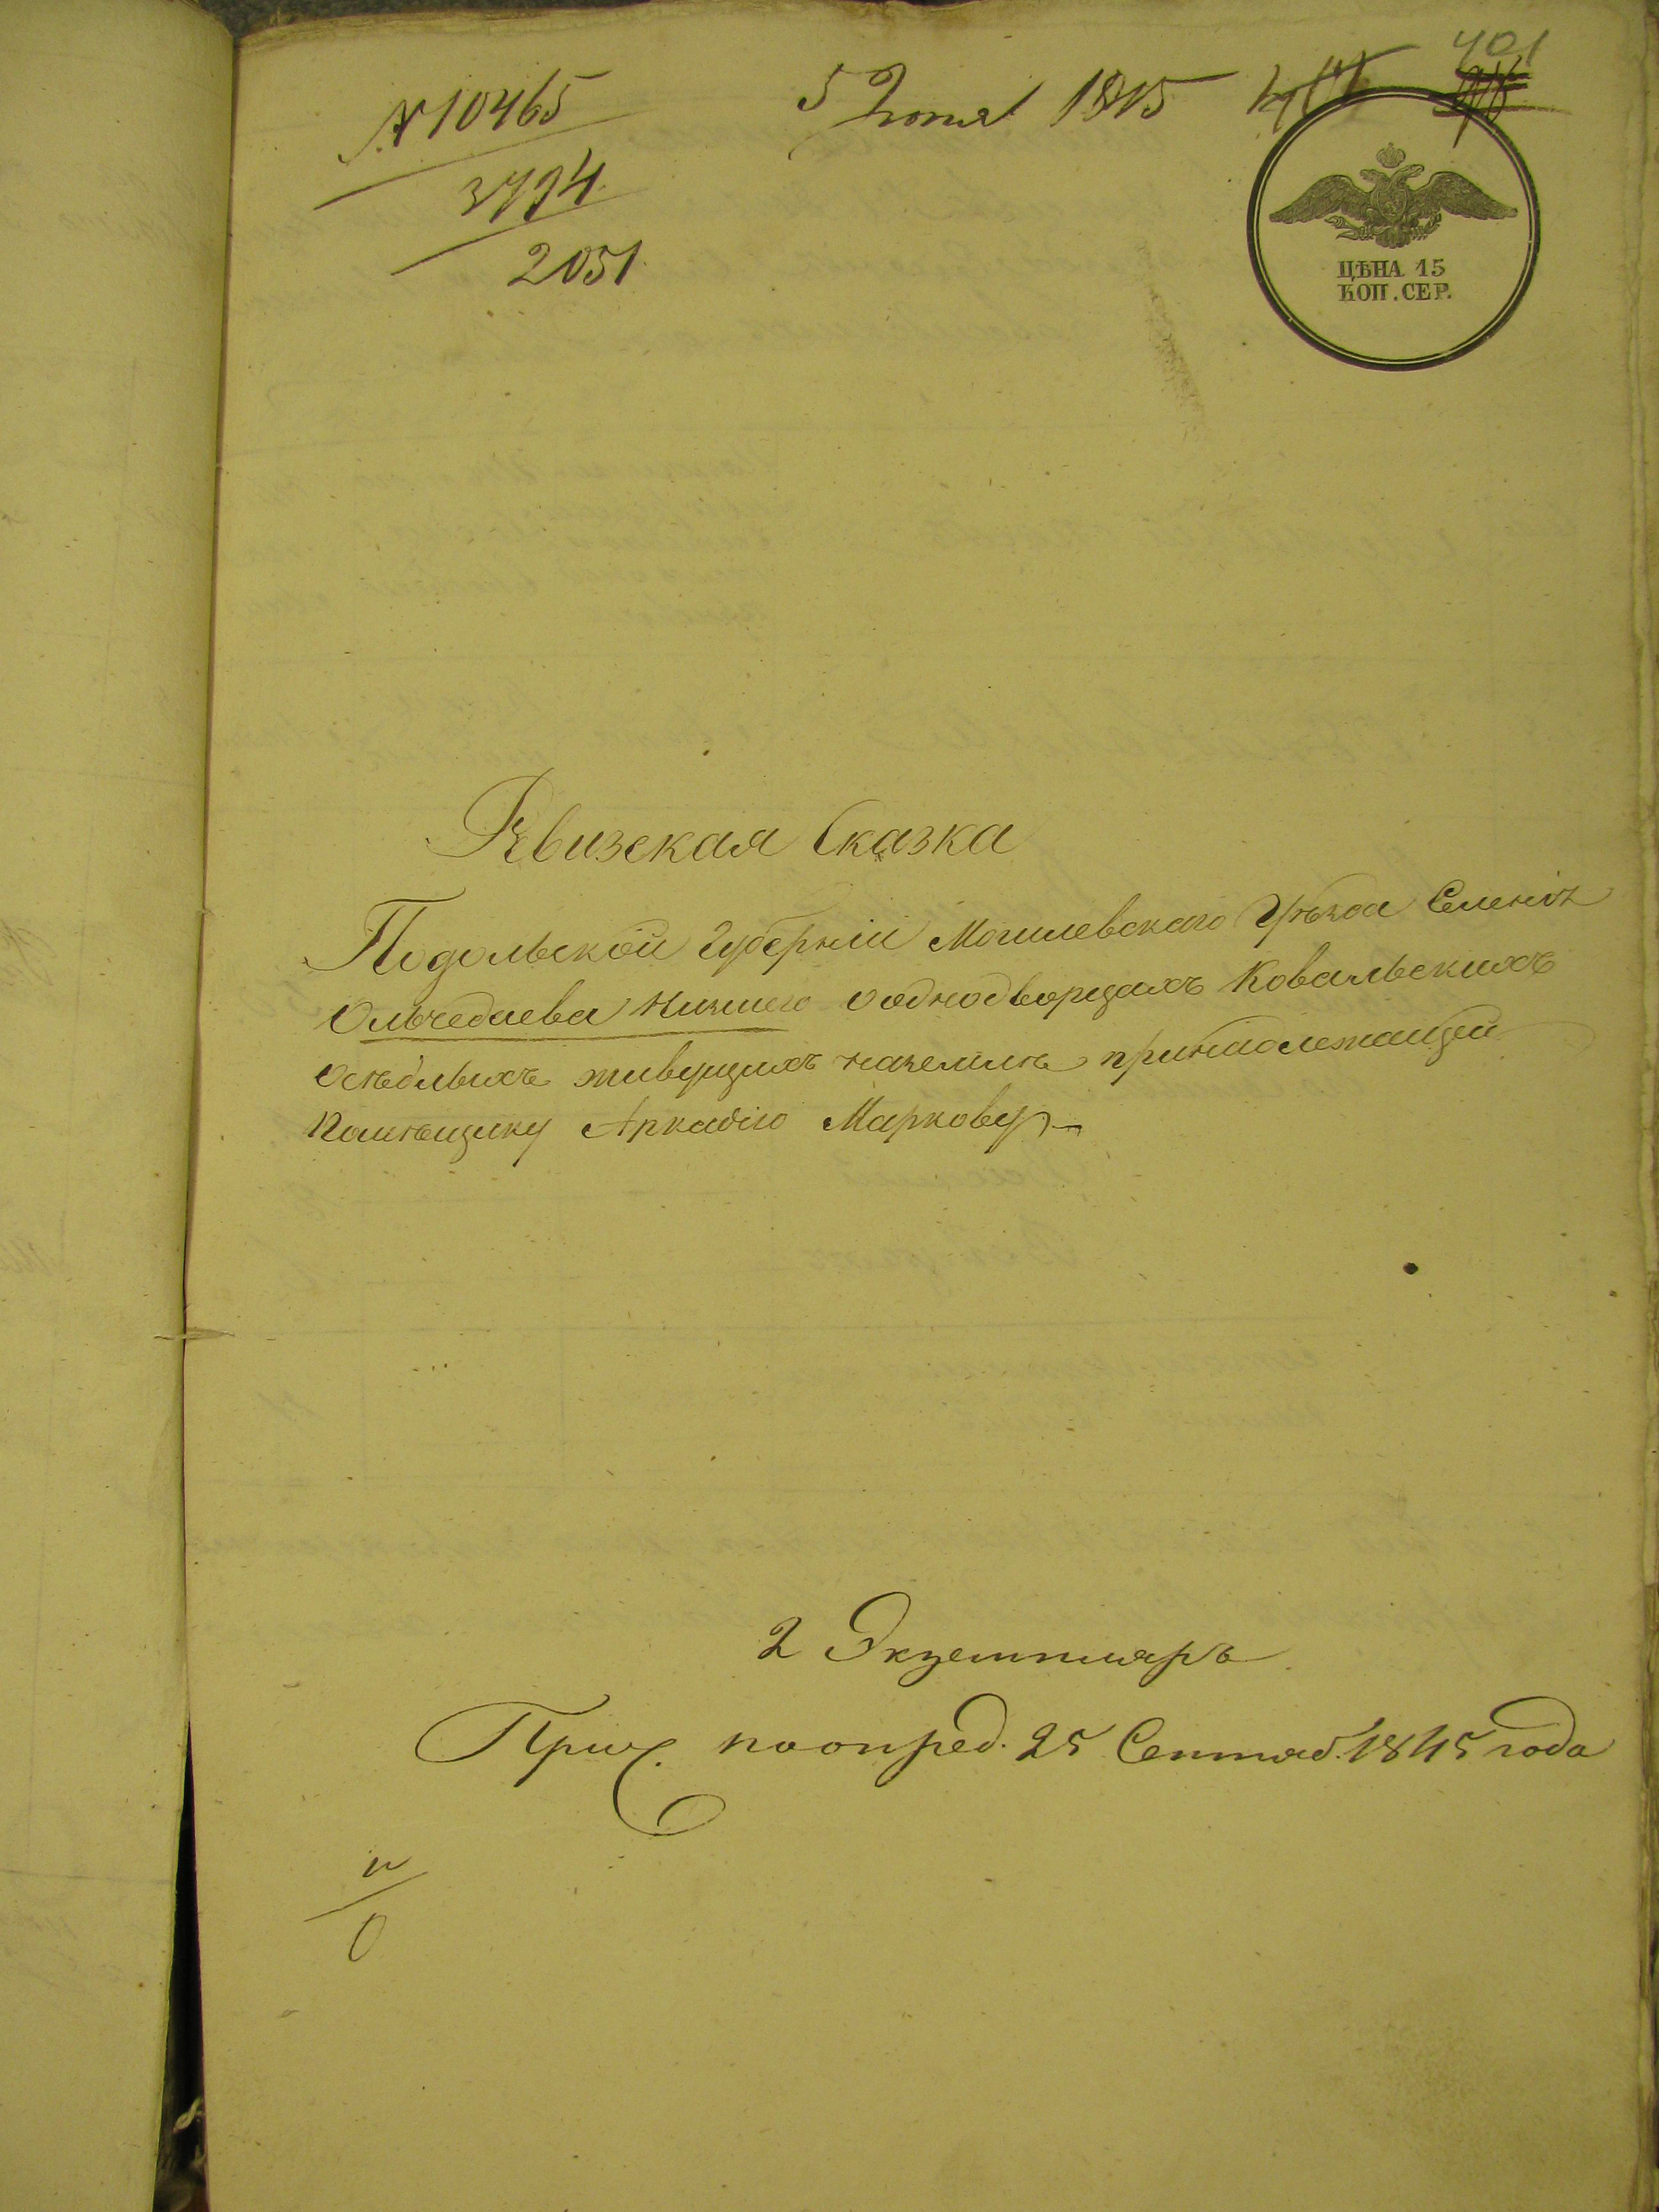 401
№ 10465
5 Июня 1845
3794
2051
ЦѢНА 15
КОП. СЕР.
Ревизская Сказка
Подольской Губерніи Могилевскаго Уѣзда Селенія
Ольчедаева Нижнего о однодворцахъ Ковальскихъ
осѣдлыхъ живущихъ на землѣ принадлежащей
Помѣщику Аркадію Маркову
2 Экземпляръ
Прич. по опред. 25 Сентяб. 1845 года
0